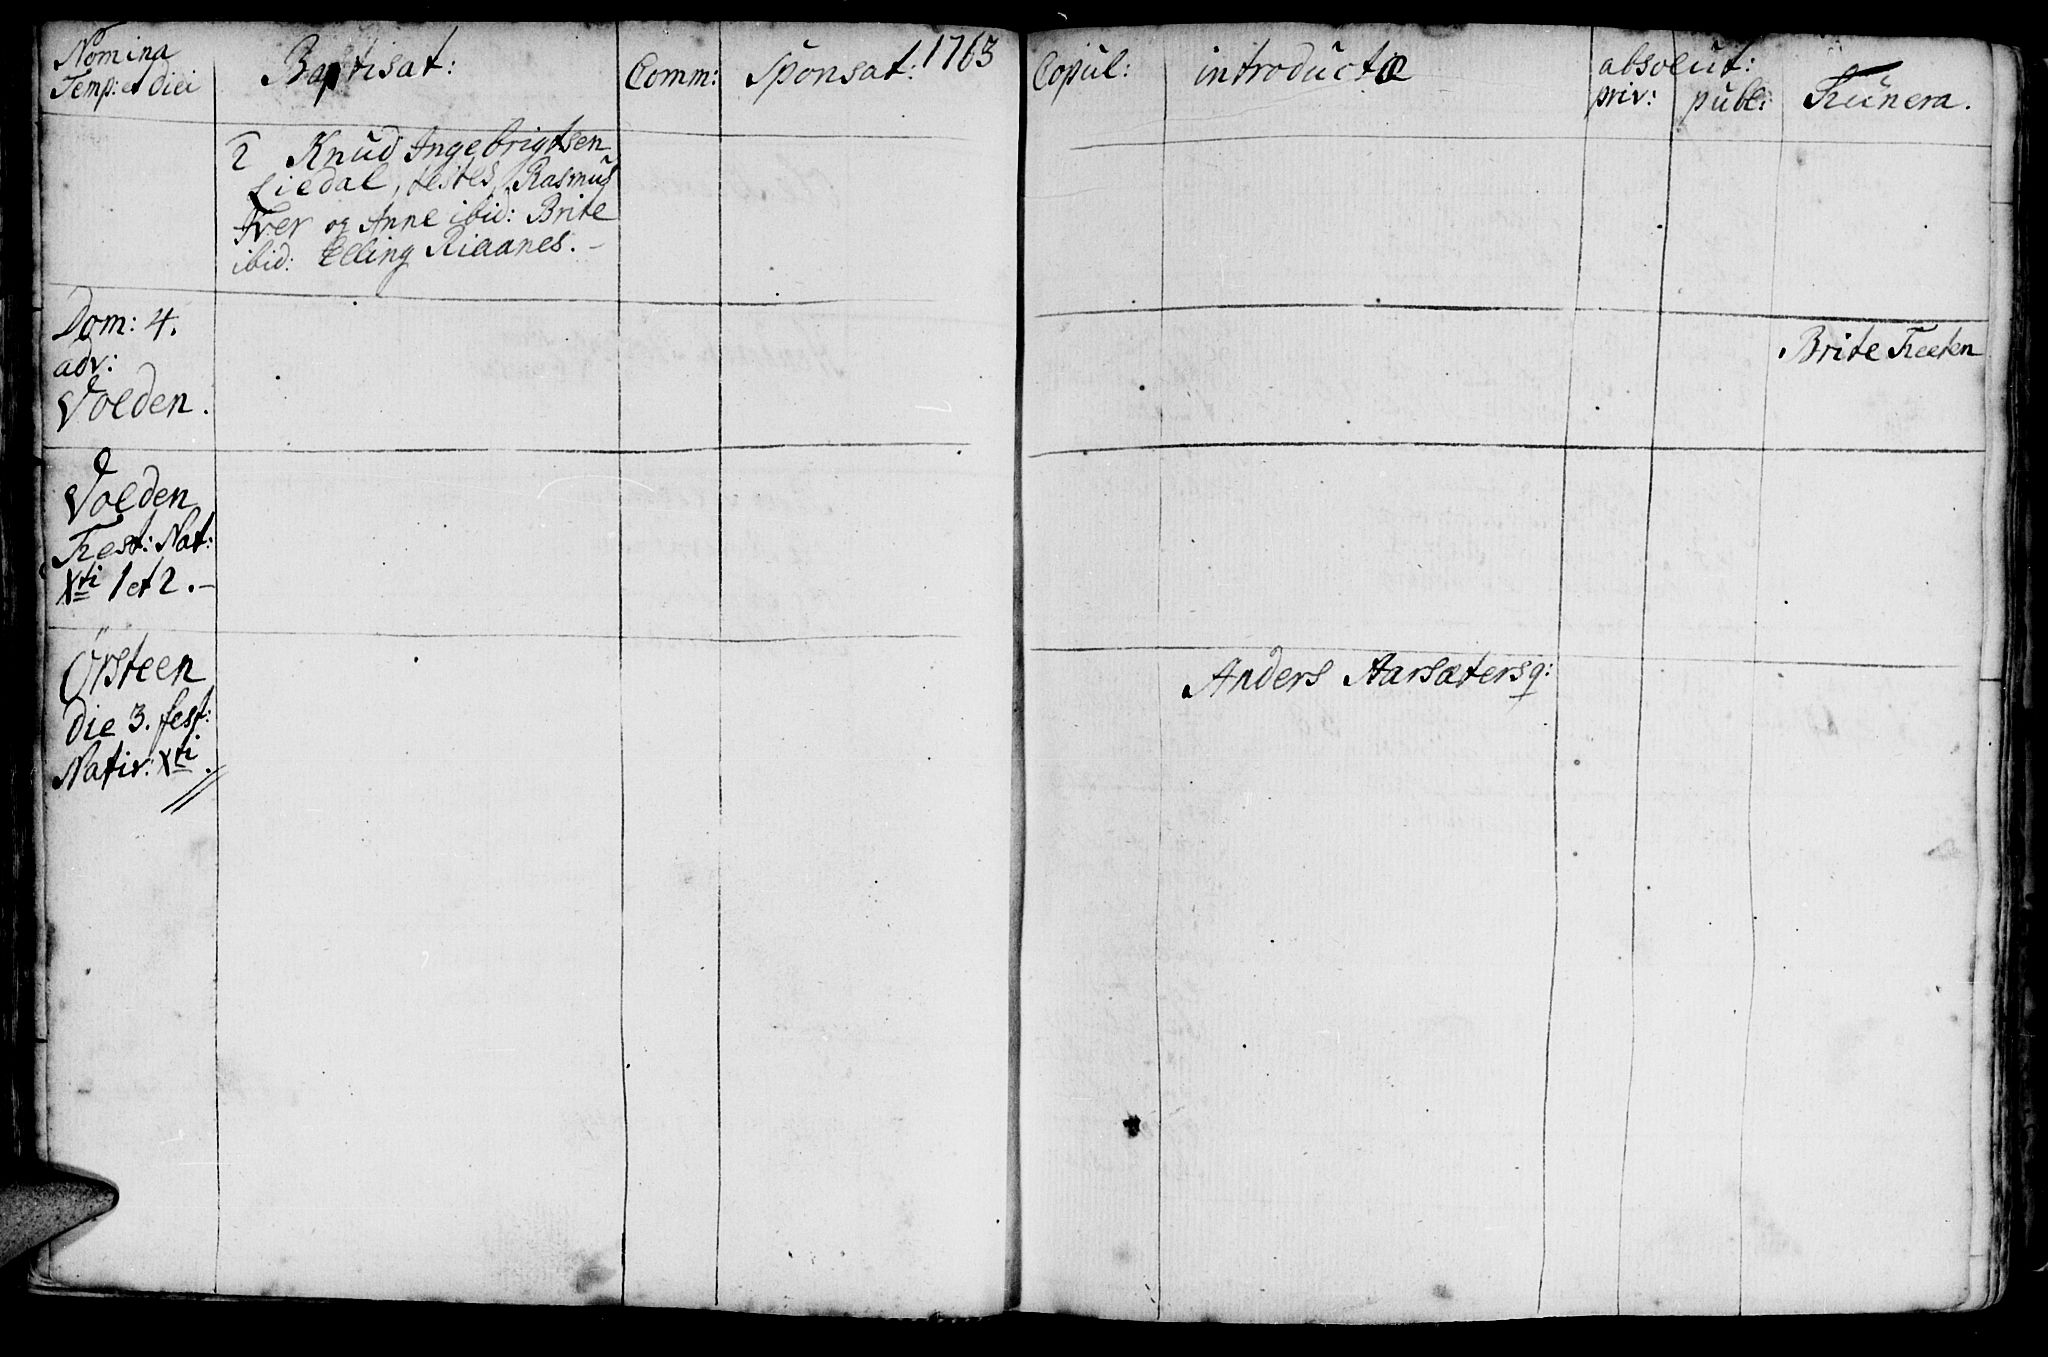 Nomina
Temp: et diei
Baptisat:
Comm:
Sponsat:
1763
Copul:
introductæ
absolut:
priv:
publ:
Funera.
2 Knud Ingebrigtsen
Liedal, testes, Rasmus
Iver og Anne ibid: Brite
ibid: Elling Riaanes.-
Dom: 4.
adv:
Volden.
Brite Feeten
Volden
Fest: Nat:
Xti 1 et 2.-
Örsteen
die 3. fest:
Nativ: Xti.
Anders Aarsætersq: